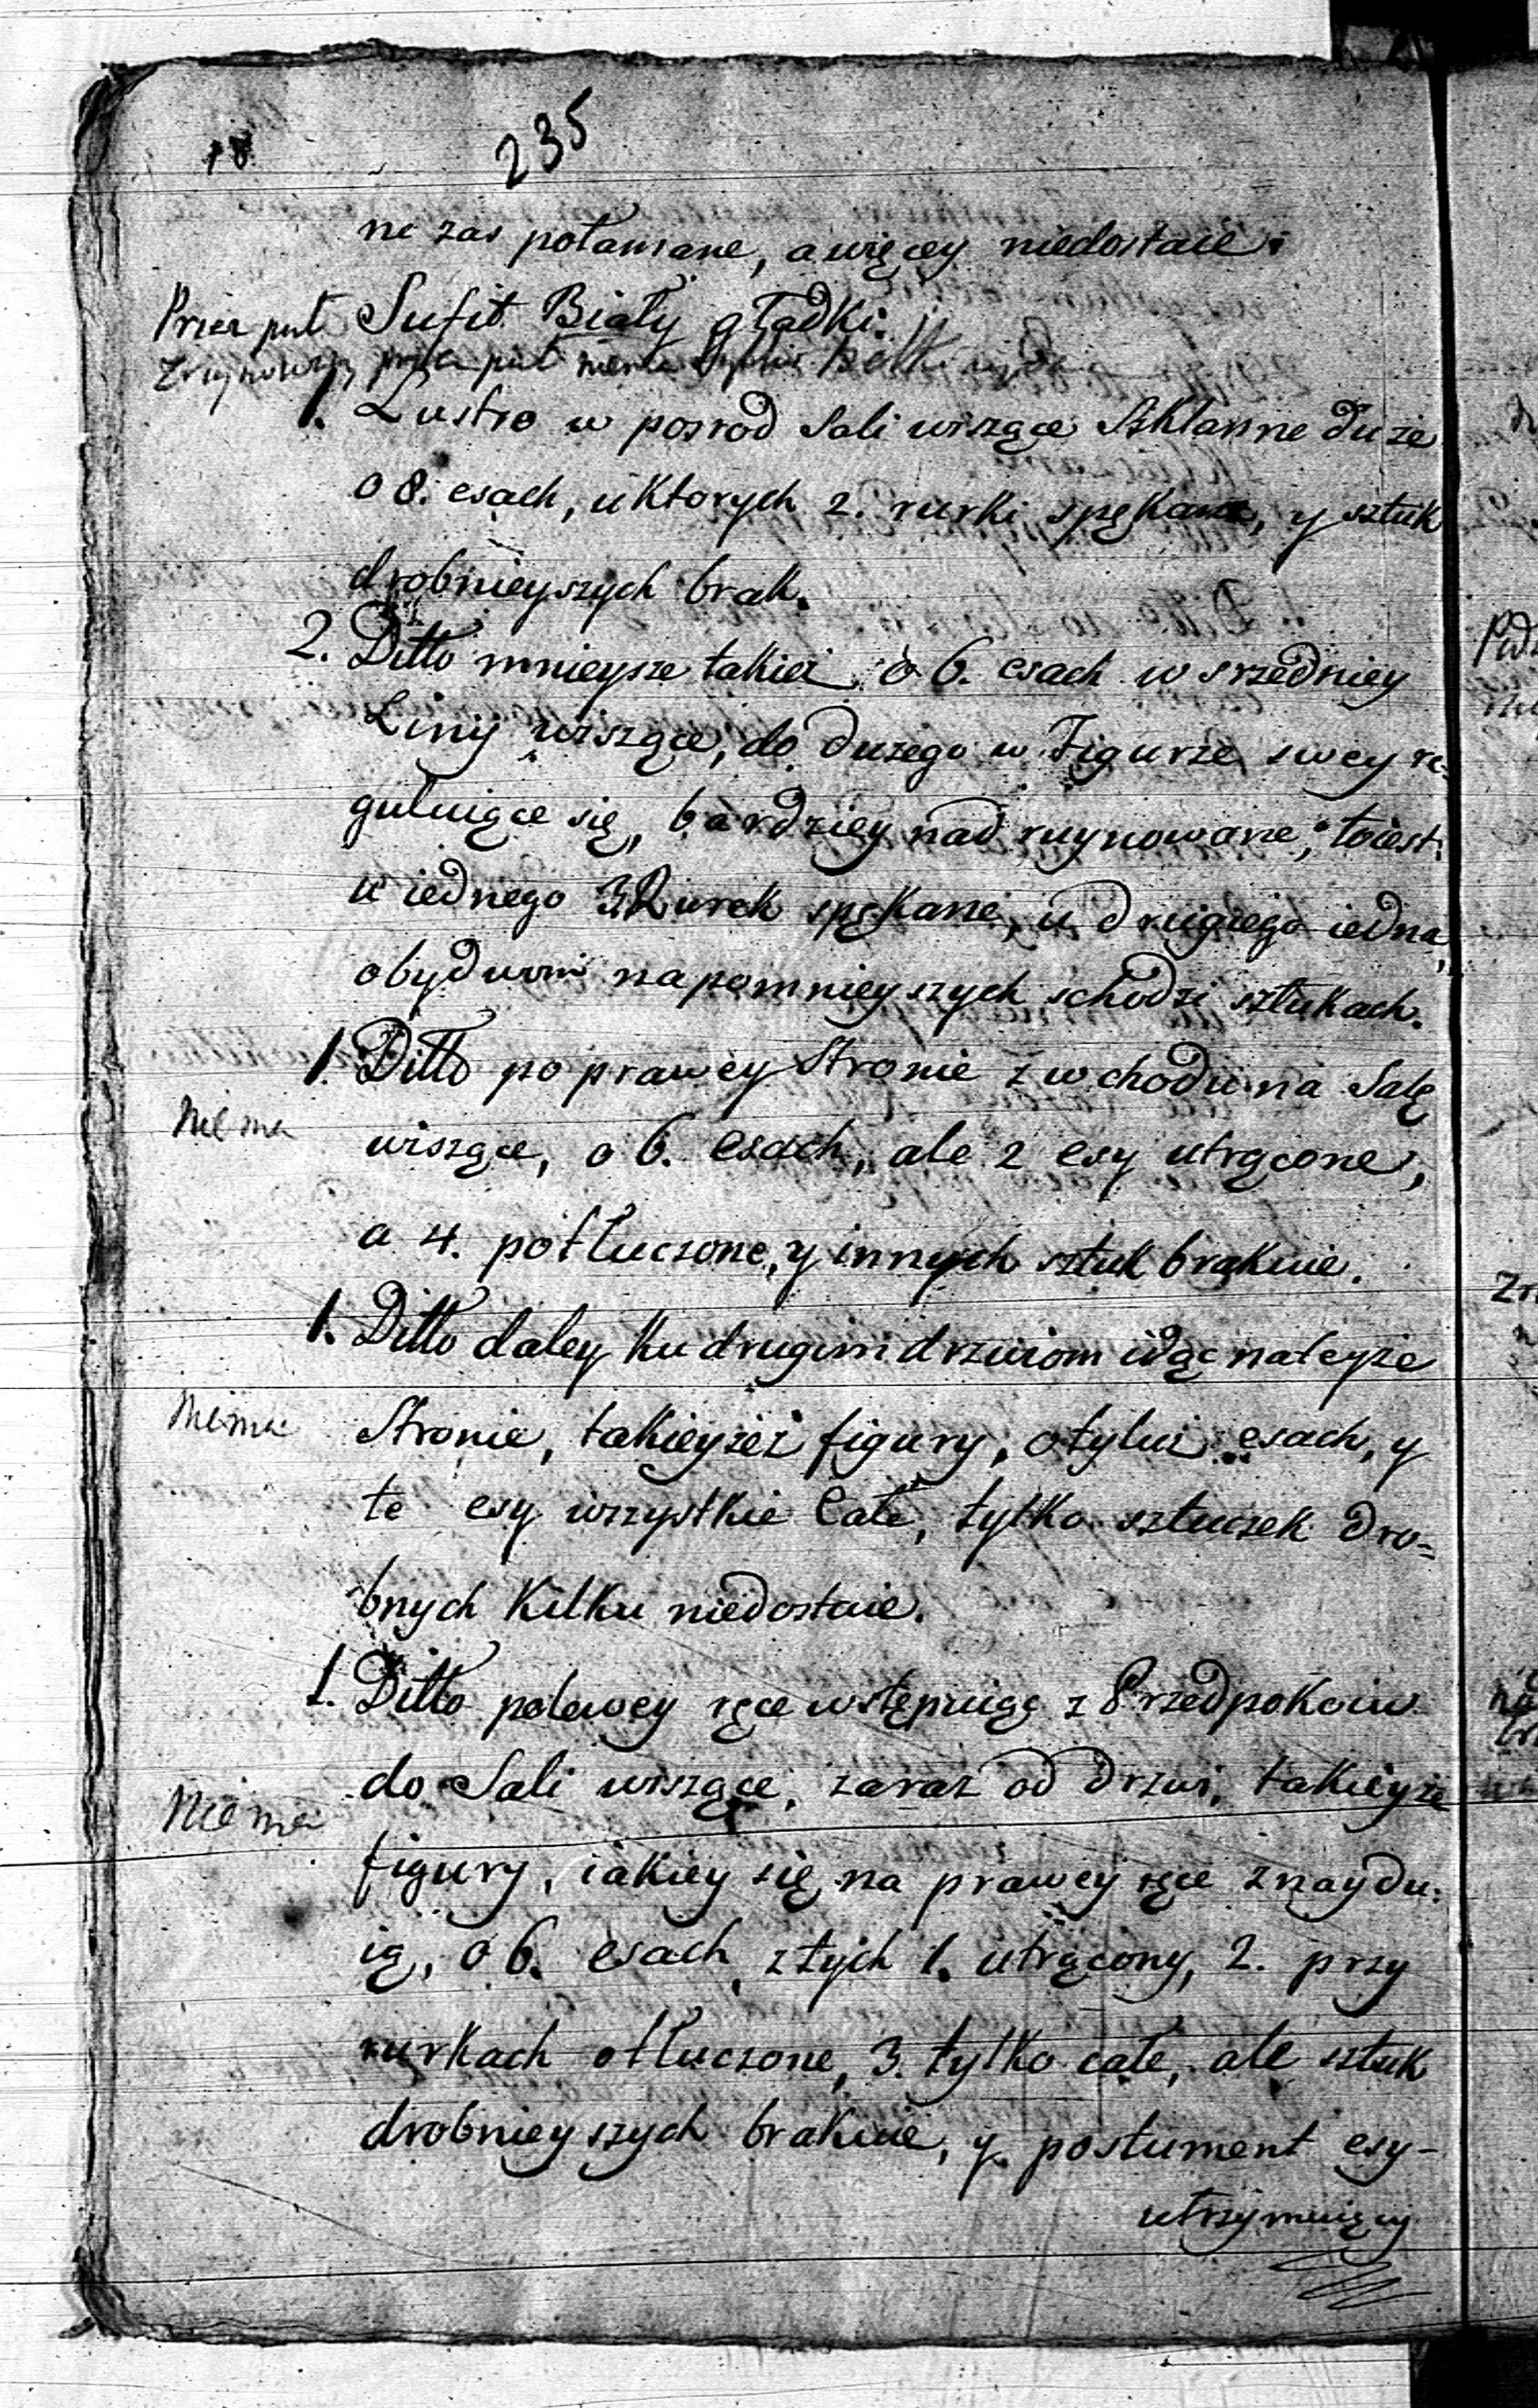 18
235
ne zas połamane, a więcey niedostaie.
Przez puł Sufit Biały gładki.
Zruynowany, przez puł
1. Lustro w posrod Sali wiszące Szklanne duże
o 8. esach, u ktorych 2. rurki spękane, y sztuk
drobnieyszych brak.
2. Ditto mnieysze takież o 6. esach w srzedniey
Linij wiszące, do dużego w Figurze swey re=
guluiące się, bardziey nadruynowane, toiest:
u iednego 3 Rurek spękane, u drugiego iedna,
obydwom na pomnieyszych schodzi sztukach.
1. Ditto po prawey Stronie z wchodu na Salę
Nie ma
wiszące, o 6. esach, ale 2 esy utrącone,
a 4. potłuczone, y innych sztuk brakuie.
1. Ditto daley ku drugim drzwiom idąc na teyże
Niema
Stronie, takieyżeż figury, o tyluż esach, y
te esy wszystkie Całe, tylko sztuczek dro=
bnych Kilku niedostaie.
1. Ditto polewey ręce wstępuiąc z Przedpokoiu
do Sali wiszące, zaraz od drzwi, takieyże
Nie ma
figury, iakiey się na prawey ręce znaydu:
ią, o 6. esach, z tych 1. utrącony, 2. przy
rurkach otłuczone, 3. tylko całe, ale sztuk
drobnieyszych brakuie, y postument esy-
utrzymuiący